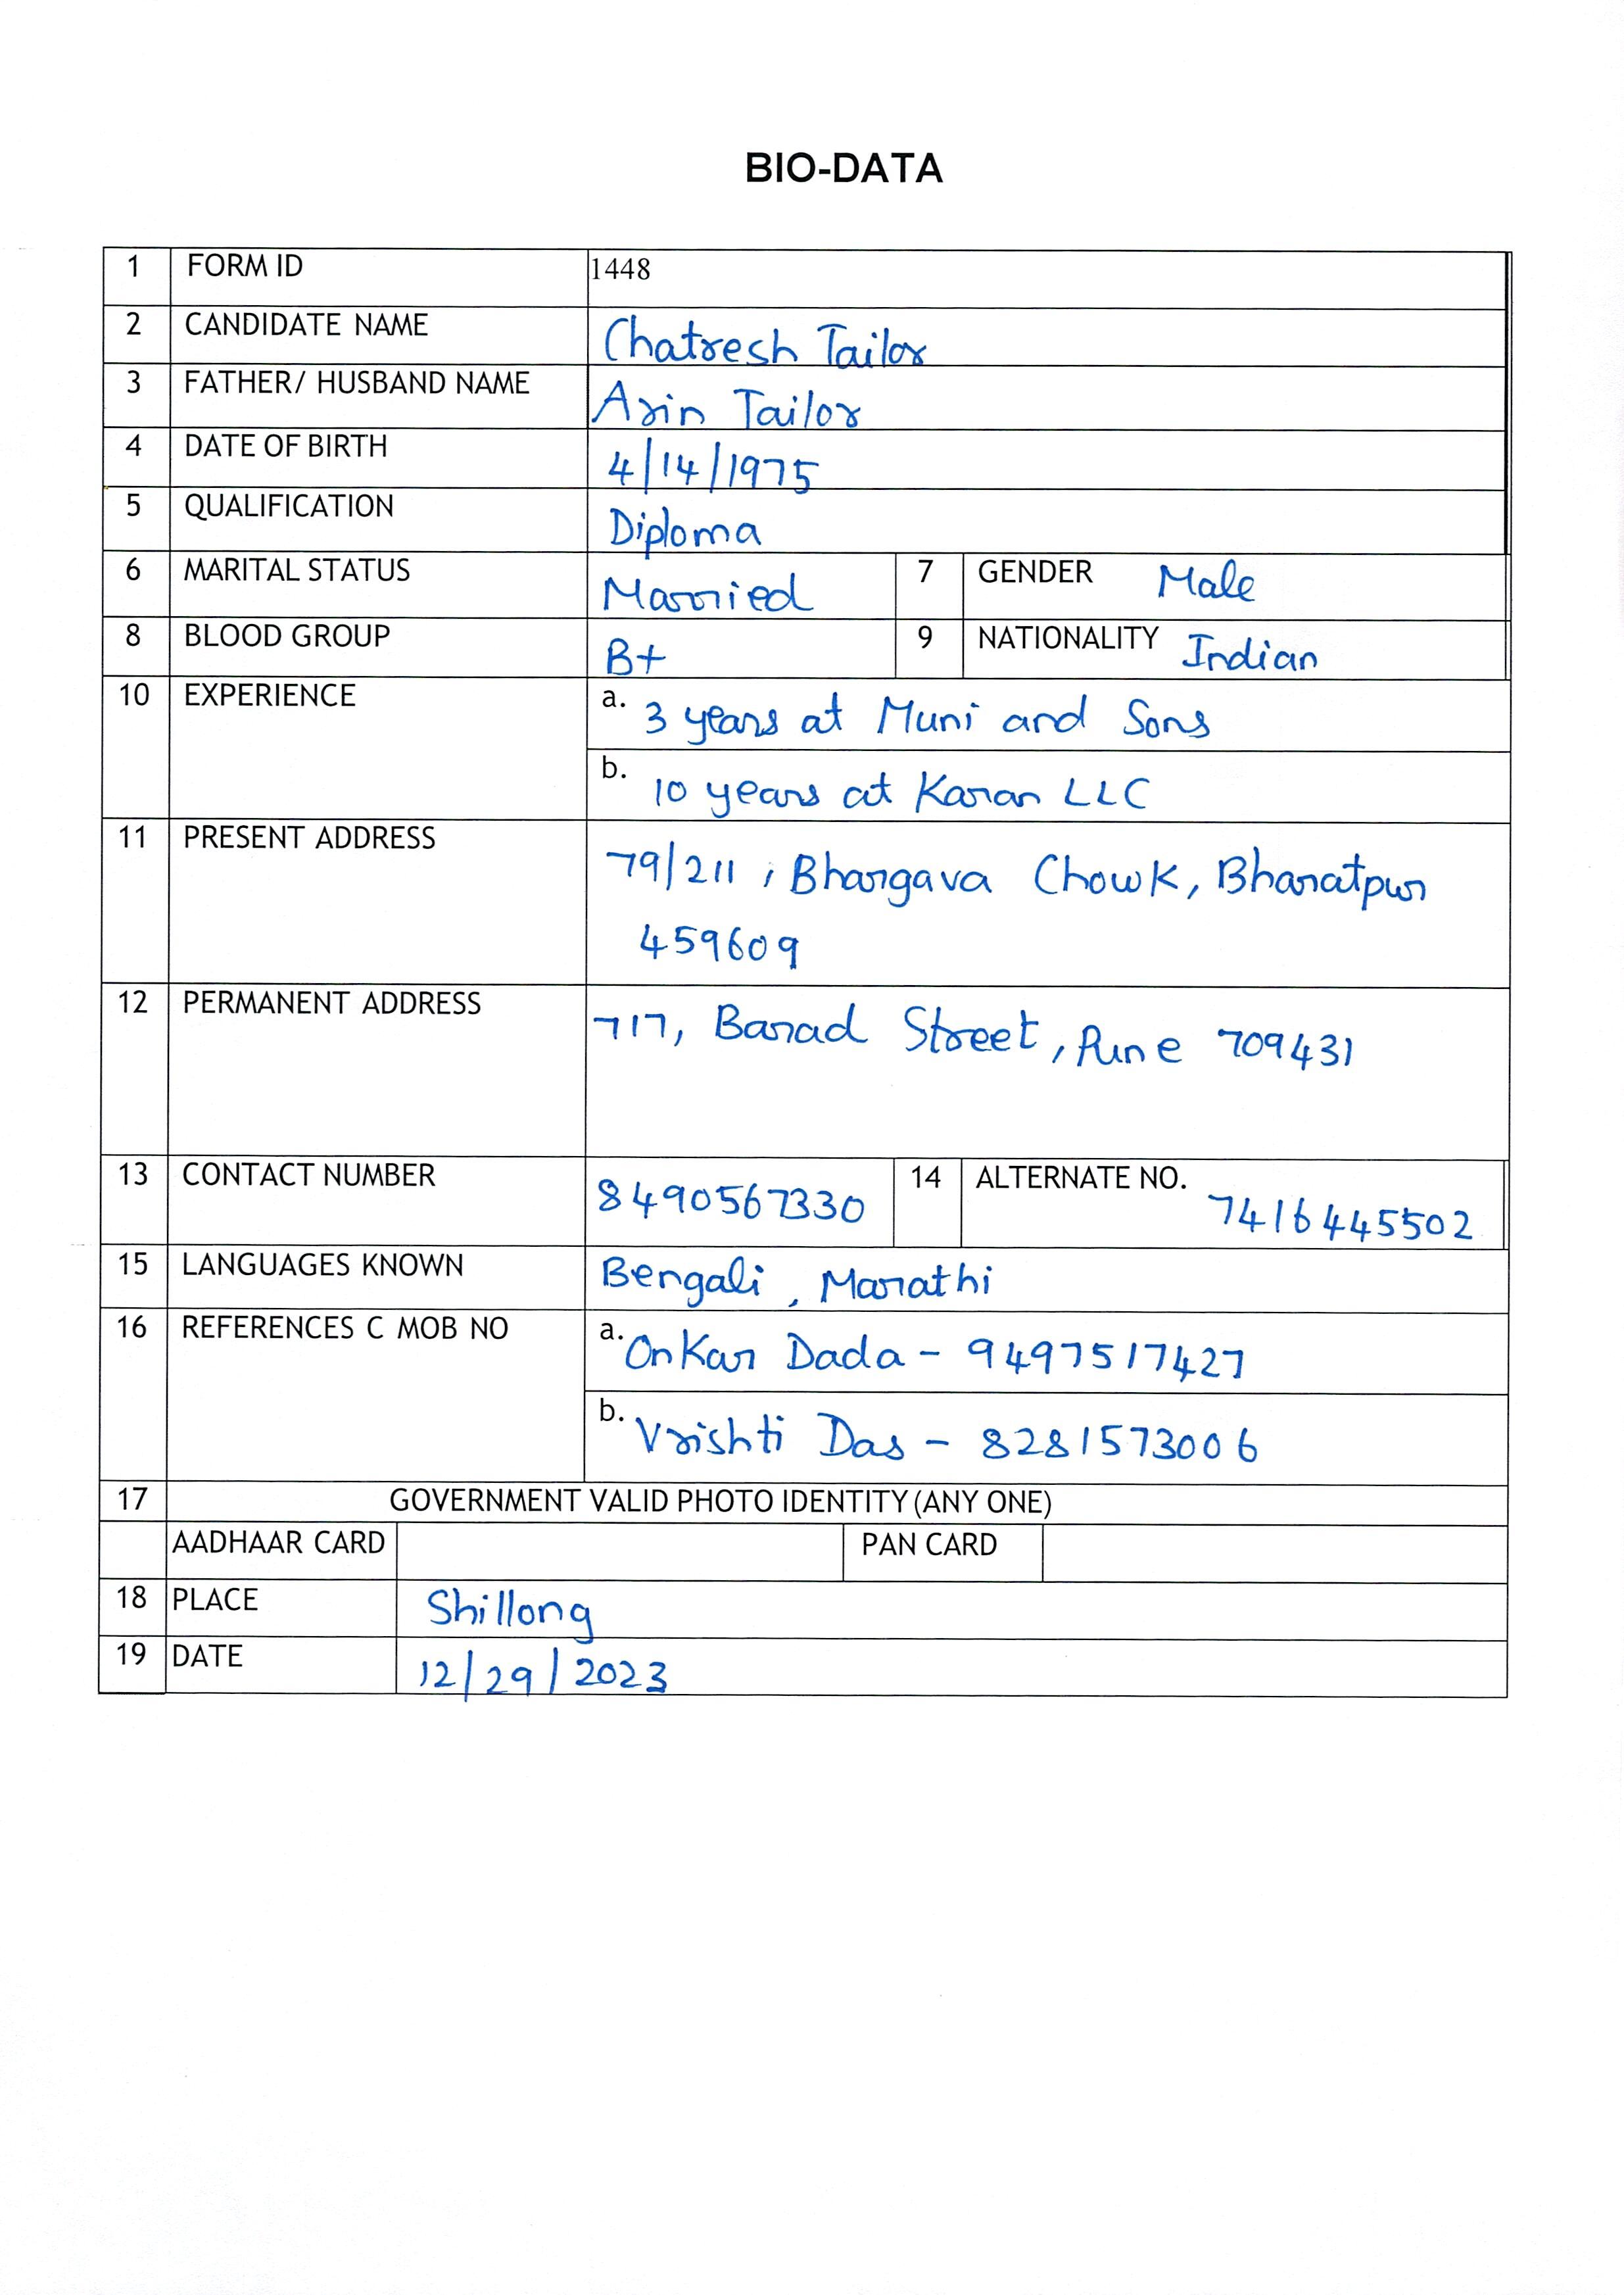 BIO-DATA
1 FORM ID 1448
2 CANDIDATE NAME Chatresh Tailor
3 FATHER/ HUSBAND NAME Arin Tailor
4 DATE OF BIRTH 4/14/1975
5 QUALIFICATION Diploma
6 MARITAL STATUS Married 7 GENDER Male
8 BLOOD GROUP B+ 9 NATIONALITY Indian
10 EXPERIENCE a. 3 years at Muni and Sons
b. 10 years at Karan LLC
11 PRESENT ADDRESS 79/211, Bhargava Chowk, Bharatpur
459609
12 PERMANENT ADDRESS 717, Barad Street, Pune 709431
13 CONTACT NUMBER 8490567330 14 ALTERNATE NO. 7416445502
15 LANGUAGES KNOWN Bengali, Marathi
16 REFERENCES C MOB NO a. Onkar Dada - 9497517427
b. Vrishti Das - 8281573006
17 GOVERNMENT VALID PHOTO IDENTITY (ANY ONE)
AADHAAR CARD PAN CARD
18 PLACE Shillong
19 DATE 12/29/2023